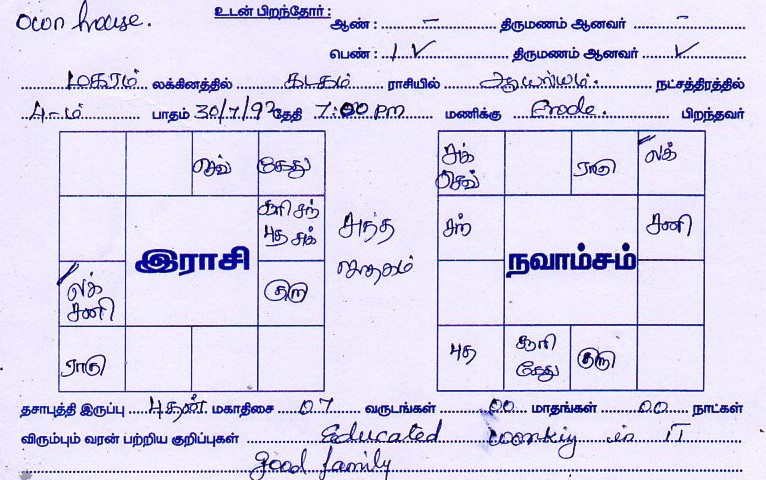 own house.
உடன் பிறந்தோர் :
ஆண் : – திருமணம் ஆனவர் –
பெண் : 1 ✓ திருமணம் ஆனவர் ✓
மகரம் லக்கினத்தில் கடகம் ராசியில் ஆயில்யம். நட்சத்திரத்தில்
4-ம் பாதம் 30/7/92 தேதி 7:00 pm மணிக்கு Erode. பிறந்தவர்
செவ் கேது
சூரி சந்
புத சுக்
இராசி
லக்
சனி
குரு
ராகு
சுக்
செவ்
ராகு லக்
சந் சனி
நவாம்சம்
புத சூரி
கேது குரு
தசாபுத்தி இருப்பு புதன் மகாதிசை 07 வருடங்கள் 00 மாதங்கள் 00 நாட்கள்
விரும்பும் வரன் பற்றிய குறிப்புகள் Educated working in IT
good family